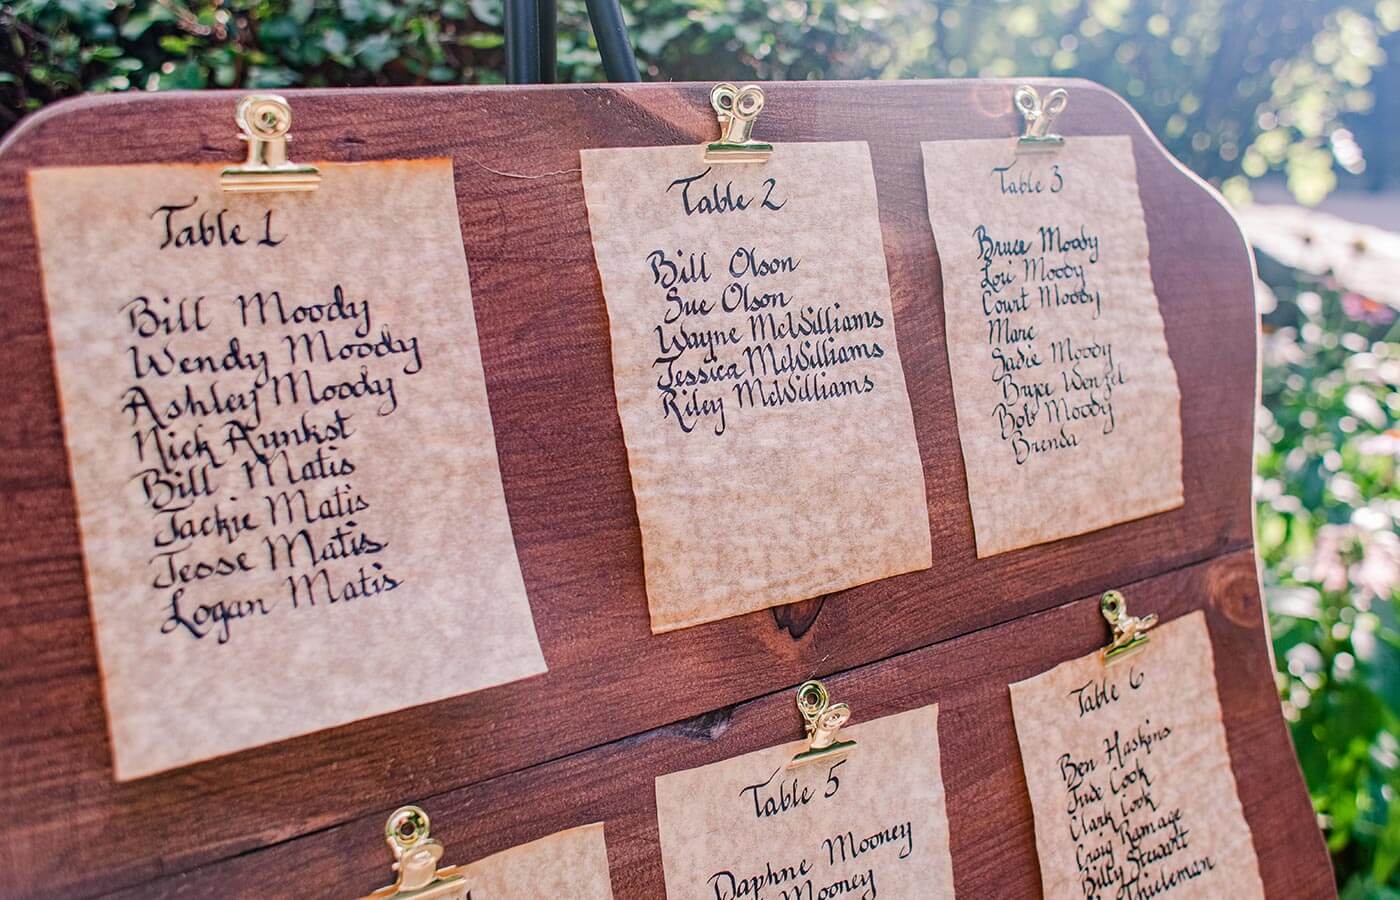 Table 1
Bill Moody
Wendy Moody
Ashley Moody
Nick Aynkst
Bill Matis
Jackie Matis
Jesse Matis
Logan Matis
Table 2
Bill Olson
Sue Olson
Wayne McWilliams
Jessica McWilliams
Riley McWilliams
Table 3
Bruce Moody
Lori Moody
Court Moody
Marc
Sadie Moody
Bryce Wenzel
Bob Moody
Brenda
Table 5
Daphne Mooney
Mooney
Table 6
Ben Haskins
Jude Cook
Clark Cook
Craig Ramage
Billy Stuart
Thieleman